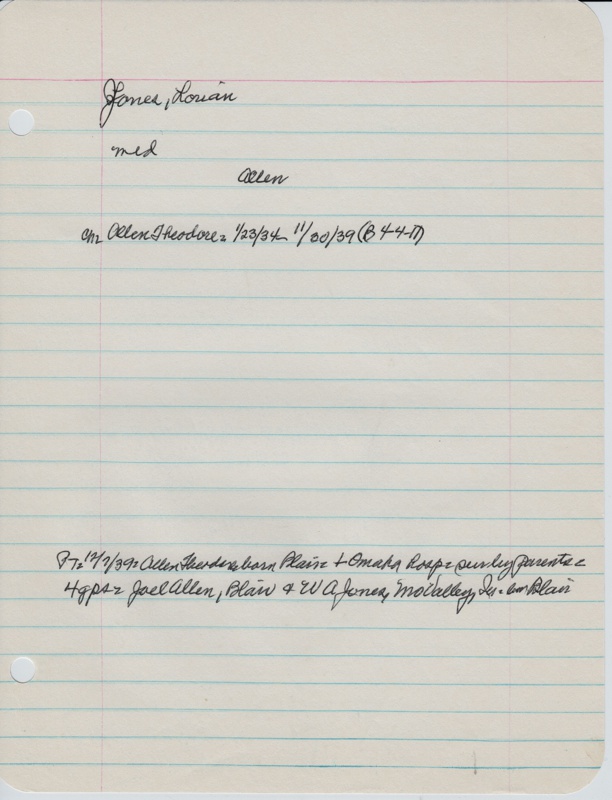 Jones, Lorian
med
Allen
Allen Theodore= 1/23/34- 11/30/39 (B 4-4-11)
12/7/39= Allen Theodore born Blair= + Omaha Hosp= sur by parents=
4gps= Joel Allen, Blair & W A Jones, MoValley, Ia= Blair